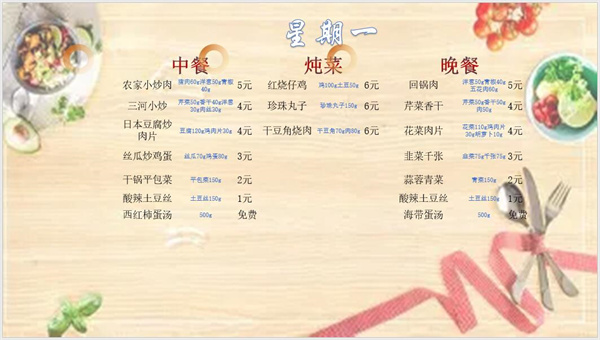 星期一
中餐
农家小炒肉 瘦肉60g洋葱50g青椒40g 5元
三河小炒 芹菜50g香干40g洋葱30g肉丝30g 4元
日本豆腐炒肉片 豆腐120g鸡肉片30g 4元
丝瓜炒鸡蛋 丝瓜70g鸡蛋80g 3元
干锅平包菜 平包菜150g 2元
酸辣土豆丝 土豆丝150g 1元
西红柿蛋汤 500g 免费
炖菜
红烧仔鸡 鸡100g土豆50g 6元
珍珠丸子 珍珠丸子150g 6元
干豆角烧肉 干豆角70g肉80g 6元
晚餐
回锅肉 洋葱50g青椒40g五花肉60g 5元
芹菜香干 芹菜50g香干50g肉50g 4元
花菜肉片 花菜110g鸡肉片30g胡萝卜10g 4元
韭菜千张 韭菜75g千张75g 3元
蒜蓉青菜 青菜150g 2元
酸辣土豆丝 土豆丝150g 1元
海带蛋汤 500g 免费